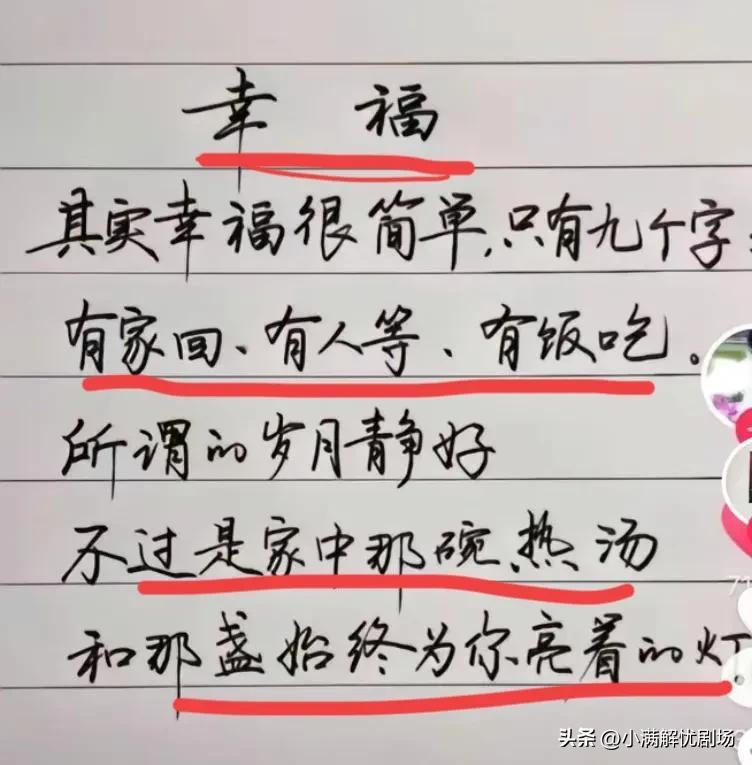 幸 福
其实幸福很简单,只有九个字:
有家回、有人等、有饭吃。
所谓的岁月静好
不过是家中那碗热汤
和那盏始终为你亮着的灯
头条 @小满解忧剧场